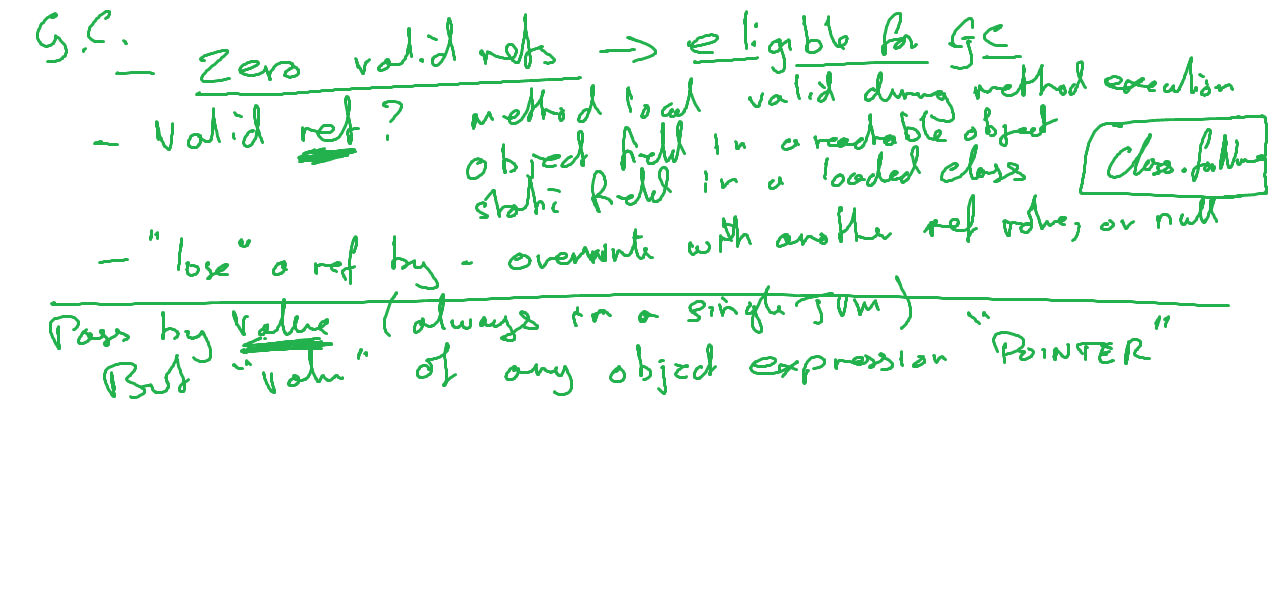 G.C.
- Zero valid refs → eligible for GC
- Valid ref? method local valid during method execution
object field in a reachable object
static field in a loaded class
Class.forName
- "lose" a ref by - overwrite with another ref value, or null
Pass by value (always in a single JVM)
But "value" of any object expression "POINTER"